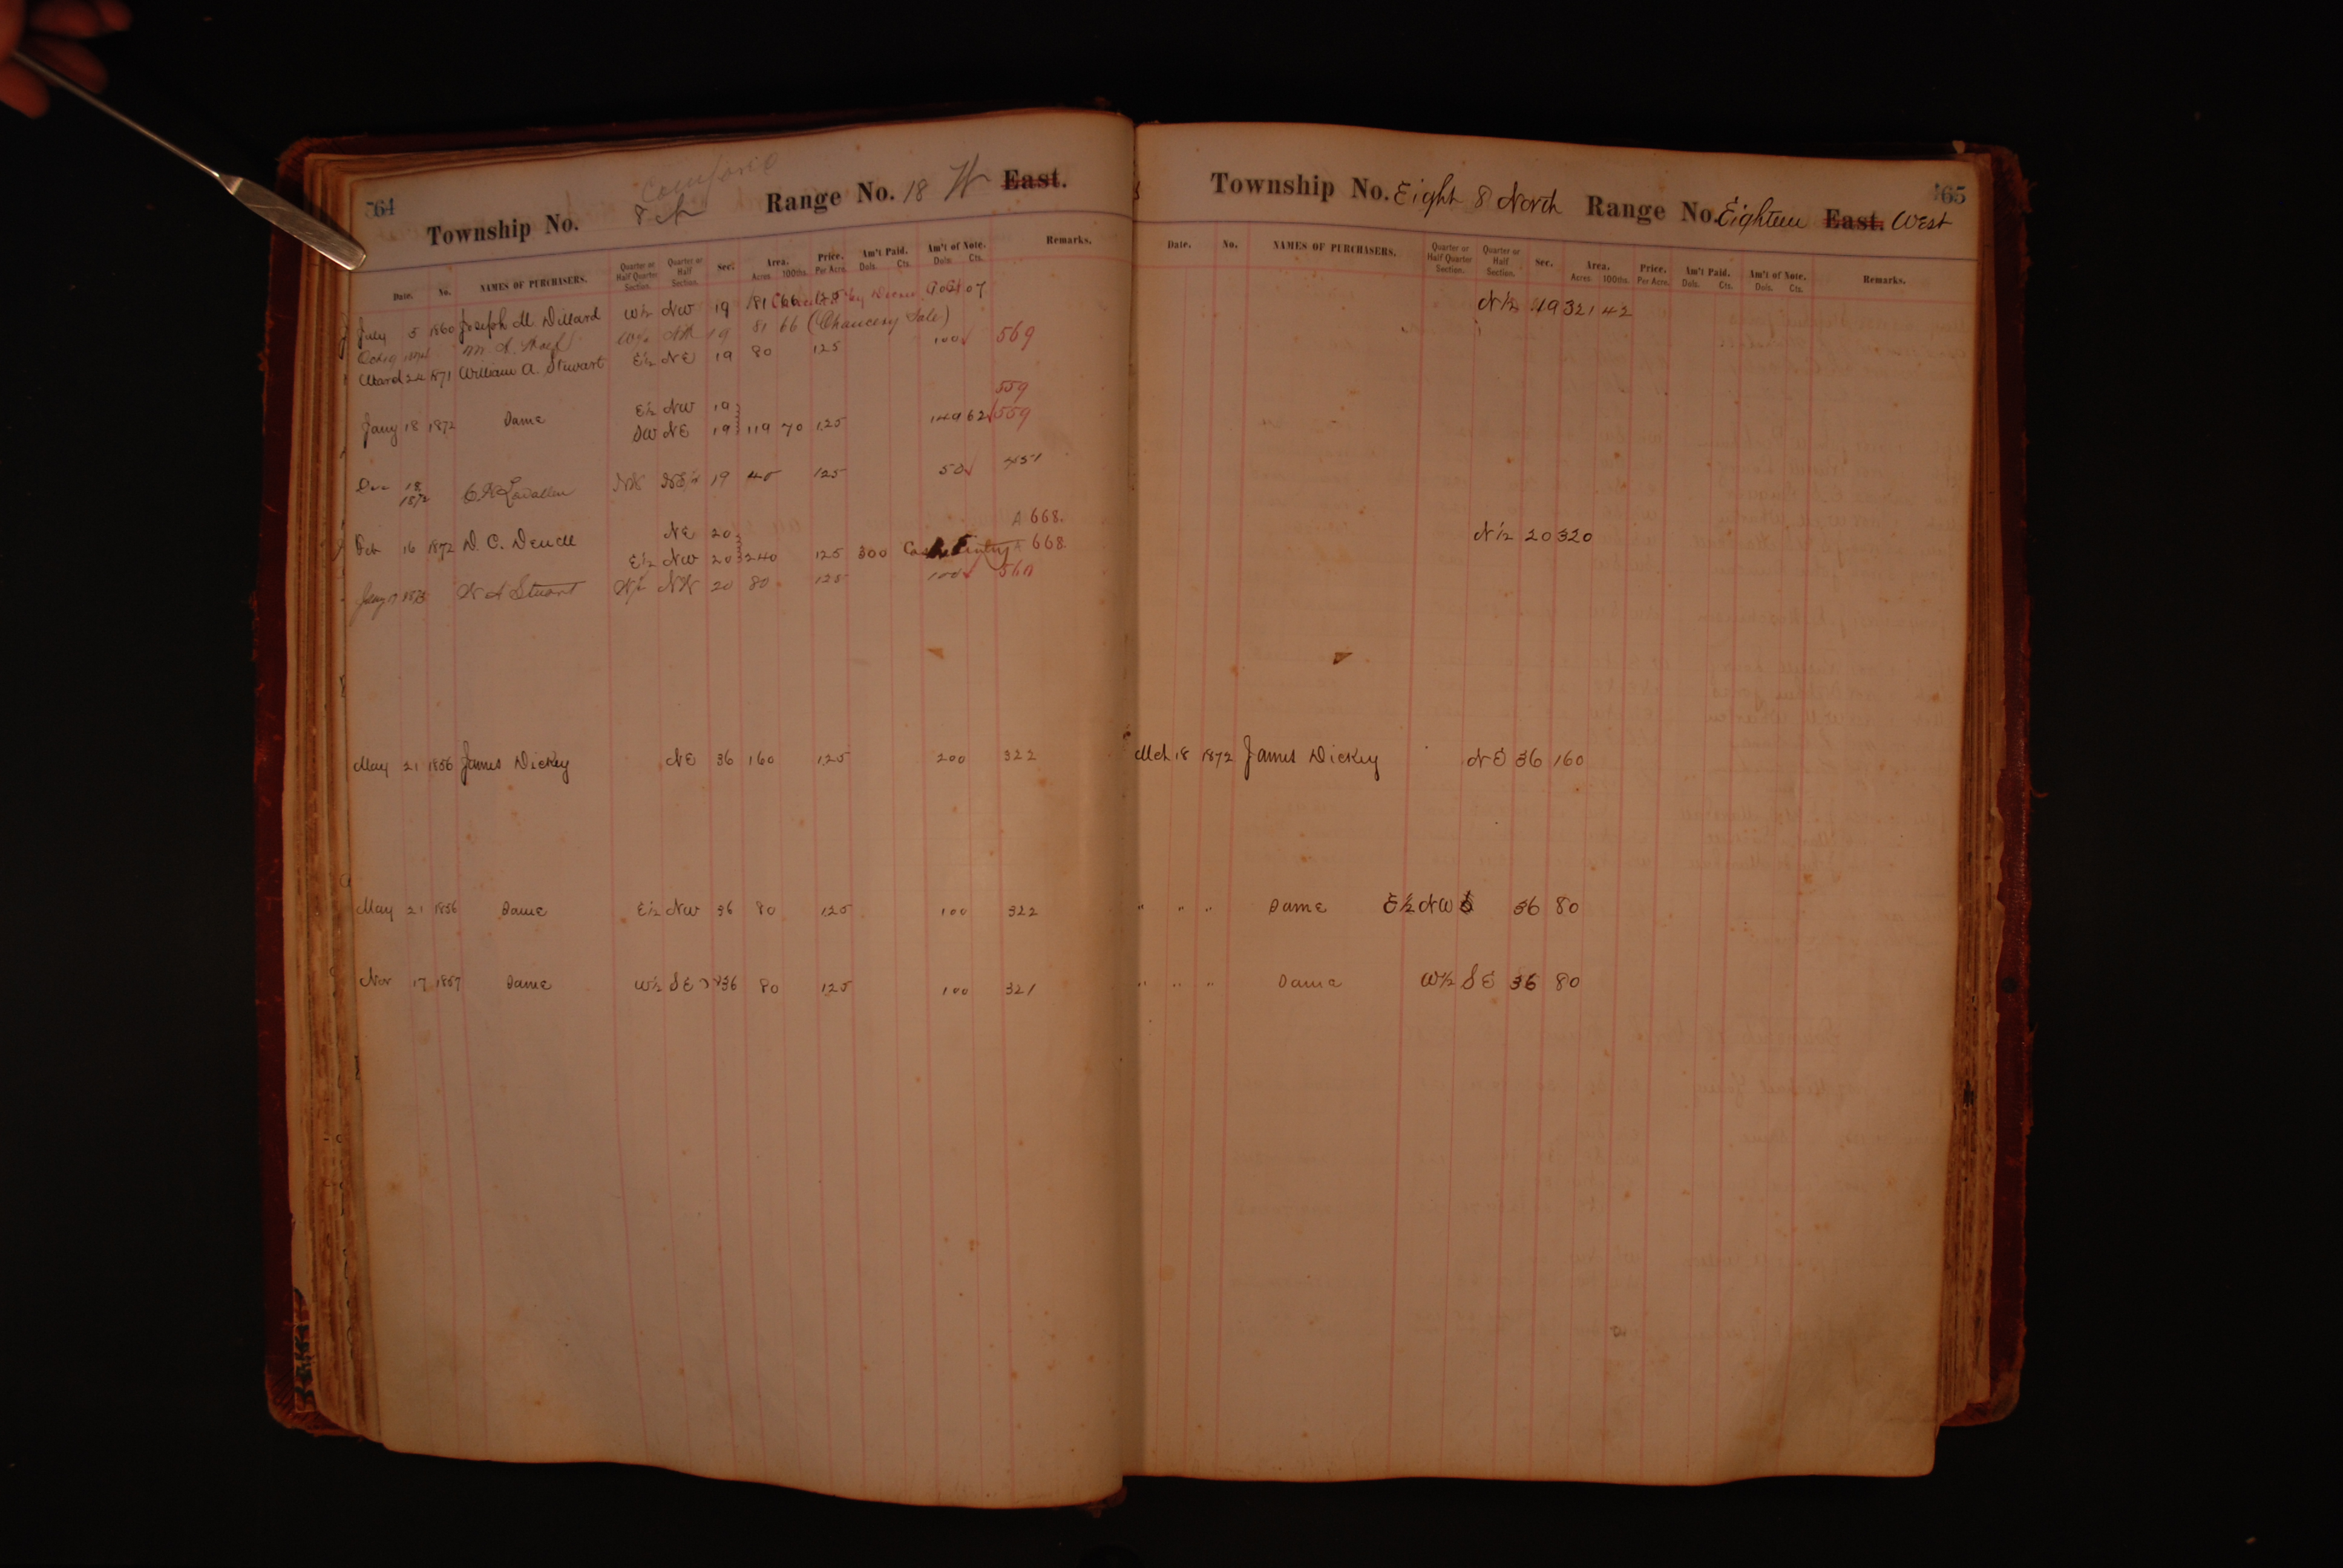 564
Township No. 8 N Range No. 18 W East.
Date. No. NAMES OF PURCHASERS. Quarter or Half Quarter Section. Quarter or Half Section. Sec. Area. Acres 100ths. Price. Per Acre. Am't Paid. Dols. Cts. Am't of Note. Dols. Cts. Remarks.
July 5 1860 Joseph M. Dillard W½ NW 19 81 66 125
19 81 66 (Chancery Sale)
March 24 1871 William A. Stewart E½ NE 19 80 125 100 569
559
Jany 18 1872 Same E½ NW 19
SW NE 19 119 70 125 149 62 559
Dec 18 1872 19 40 125 50 451
A 668.
Feb 16 1872 D. C. NE 20
E½ NW 20 240 125 300 Cash entry A 668
Jany 17 W A Stuart W½ NW 20 80 125 100
May 21 1856 James Dickey NE 36 160 125 200 322
May 21 1856 Same E½ NW 36 80 125 100 322
Nov 17 1857 Same W½ SE 36 80 125 100 321
565
Township No. Eight 8 North Range No. Eighteen East. West
Date. No. NAMES OF PURCHASERS. Quarter or Half Quarter Section. Quarter or Half Section. Sec. Area. Acres 100ths. Price. Per Acre. Am't Paid. Dols. Cts. Am't of Note. Dols. Cts. Remarks.
N½ 19 321 42
N½ 20 320
Mch 18 1872 James Dickey NE 36 160
" " " Same E½ NW 36 80
" " " Same W½ SE 36 80